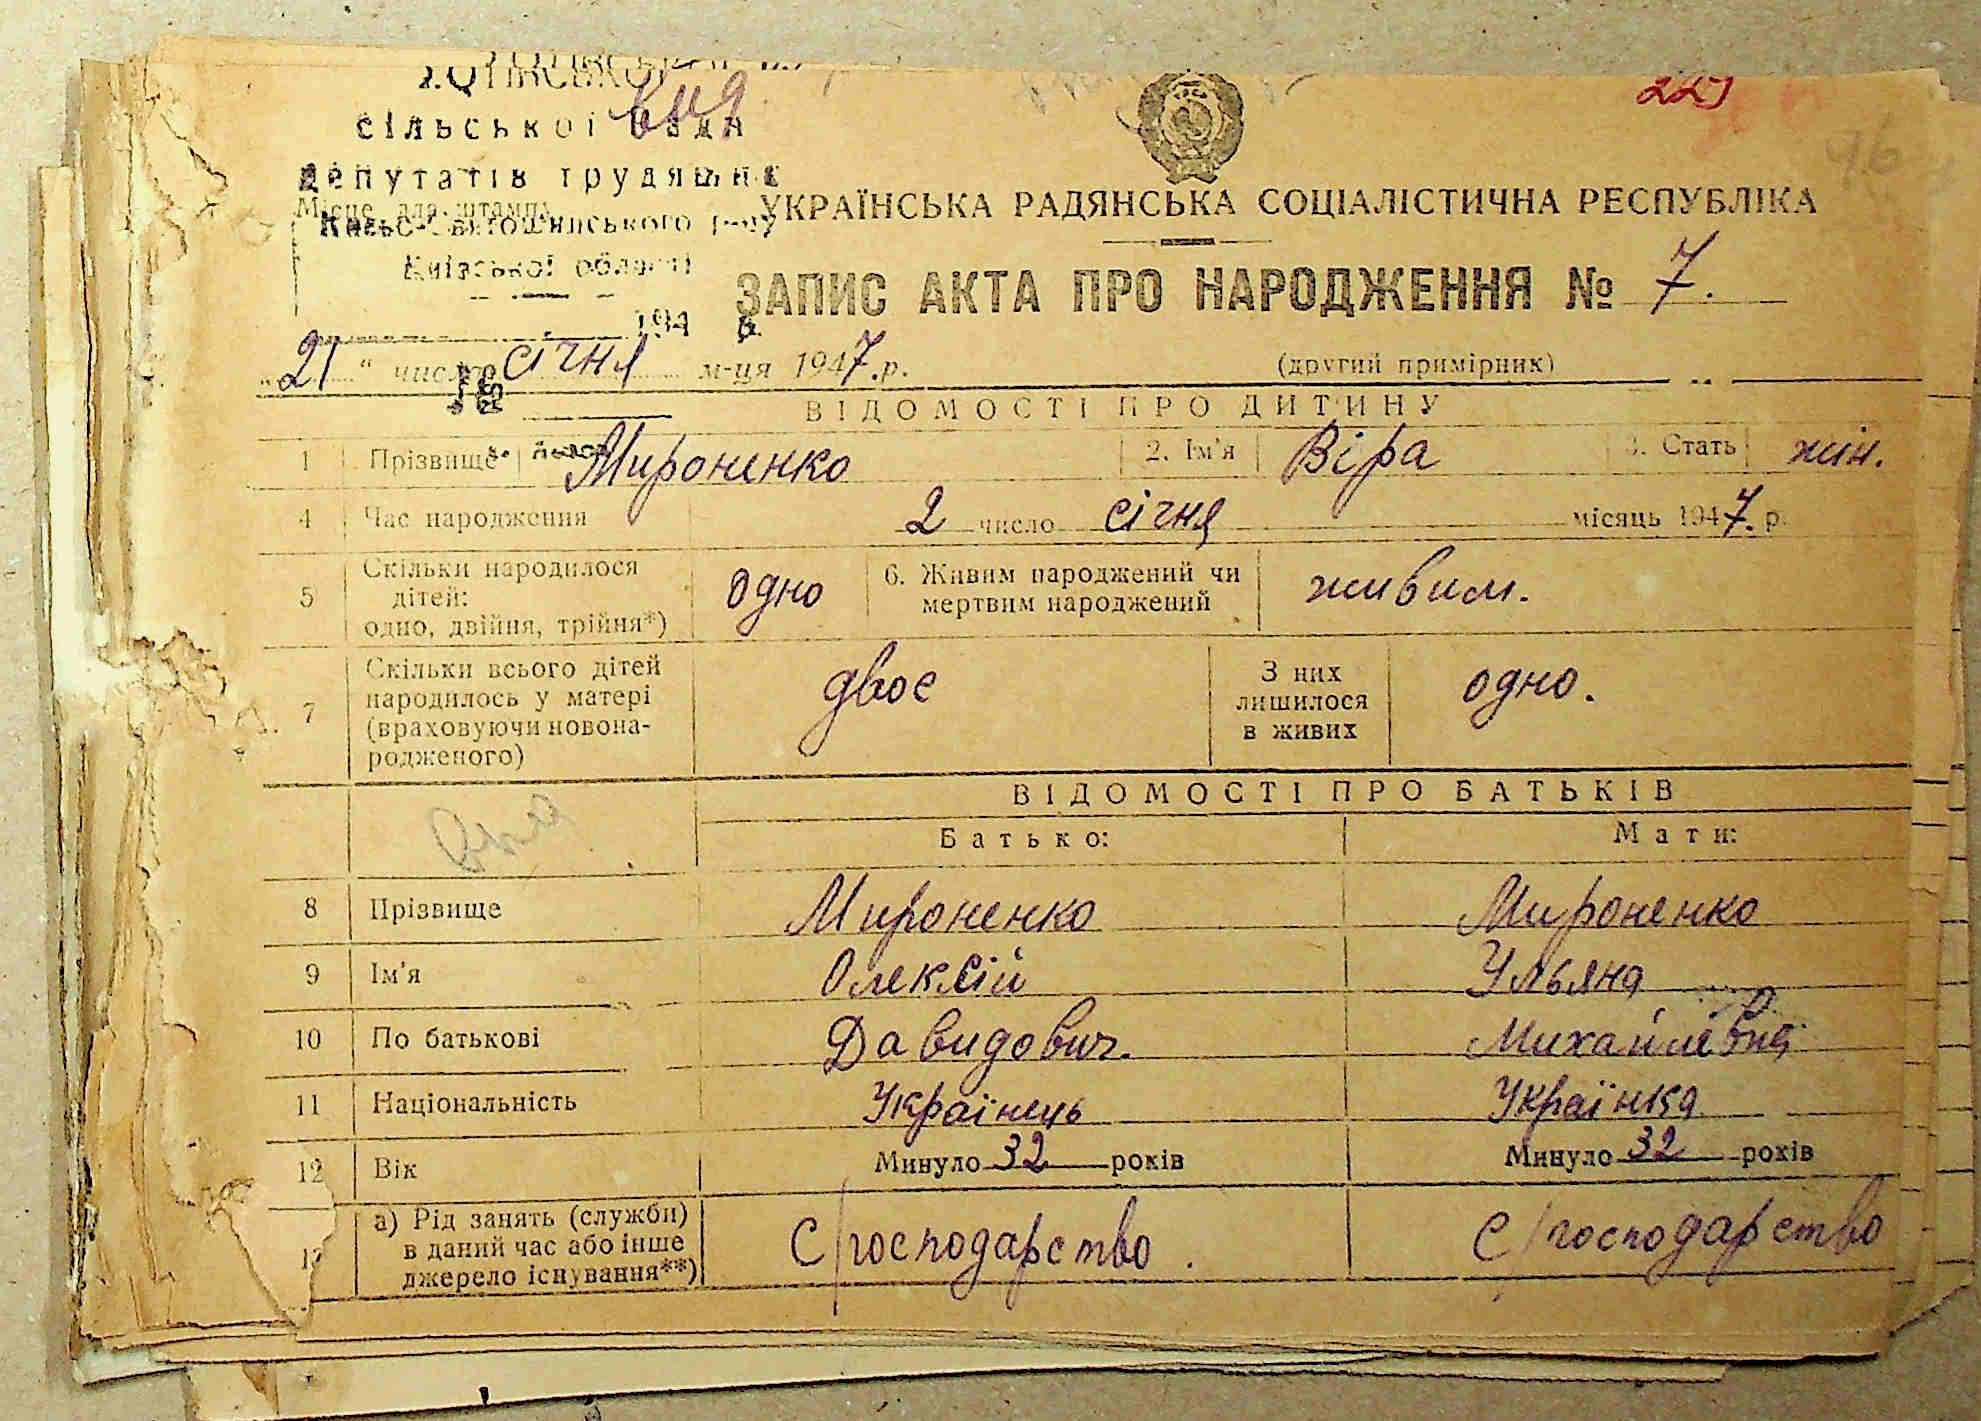 сільської Ради
депутатів трудящих
Місце для штампу
Києво-Святошинського р-ну
Київської області
194 р.
229
УКРАЇНСЬКА РАДЯНСЬКА СОЦІАЛІСТИЧНА РЕСПУБЛІКА
ЗАПИС АКТА ПРО НАРОДЖЕННЯ № 7.
„21“ число січня м-ця 1947 р.
(другий примірник)
ВІДОМОСТІ ПРО ДИТИНУ
1 Прізвище Мироненко 2. Ім'я Віра 3. Стать жін.
4 Час народження 2 число січня місяць 1947. р.
5 Скільки народилося
дітей:
одно, двійня, трійня*)
одно
6. Живим народжений чи
мертвим народжений
живим.
7 Скільки всього дітей
народилось у матері
(враховуючи новона-
родженого)
двоє
З них
лишилося
в живих
одно.
ВІДОМОСТІ ПРО БАТЬКІВ
Батько: Мати:
8 Прізвище Мироненко Мироненко
9 Ім'я Олексій Ульяна
10 По батькові Давидович. Михайлівна
11 Національність Українець Українка
12 Вік Минуло 32 років Минуло 32 років
13 а) Рід занять (служби)
в даний час або інше
джерело існування**)
С/господарство. С/господарство